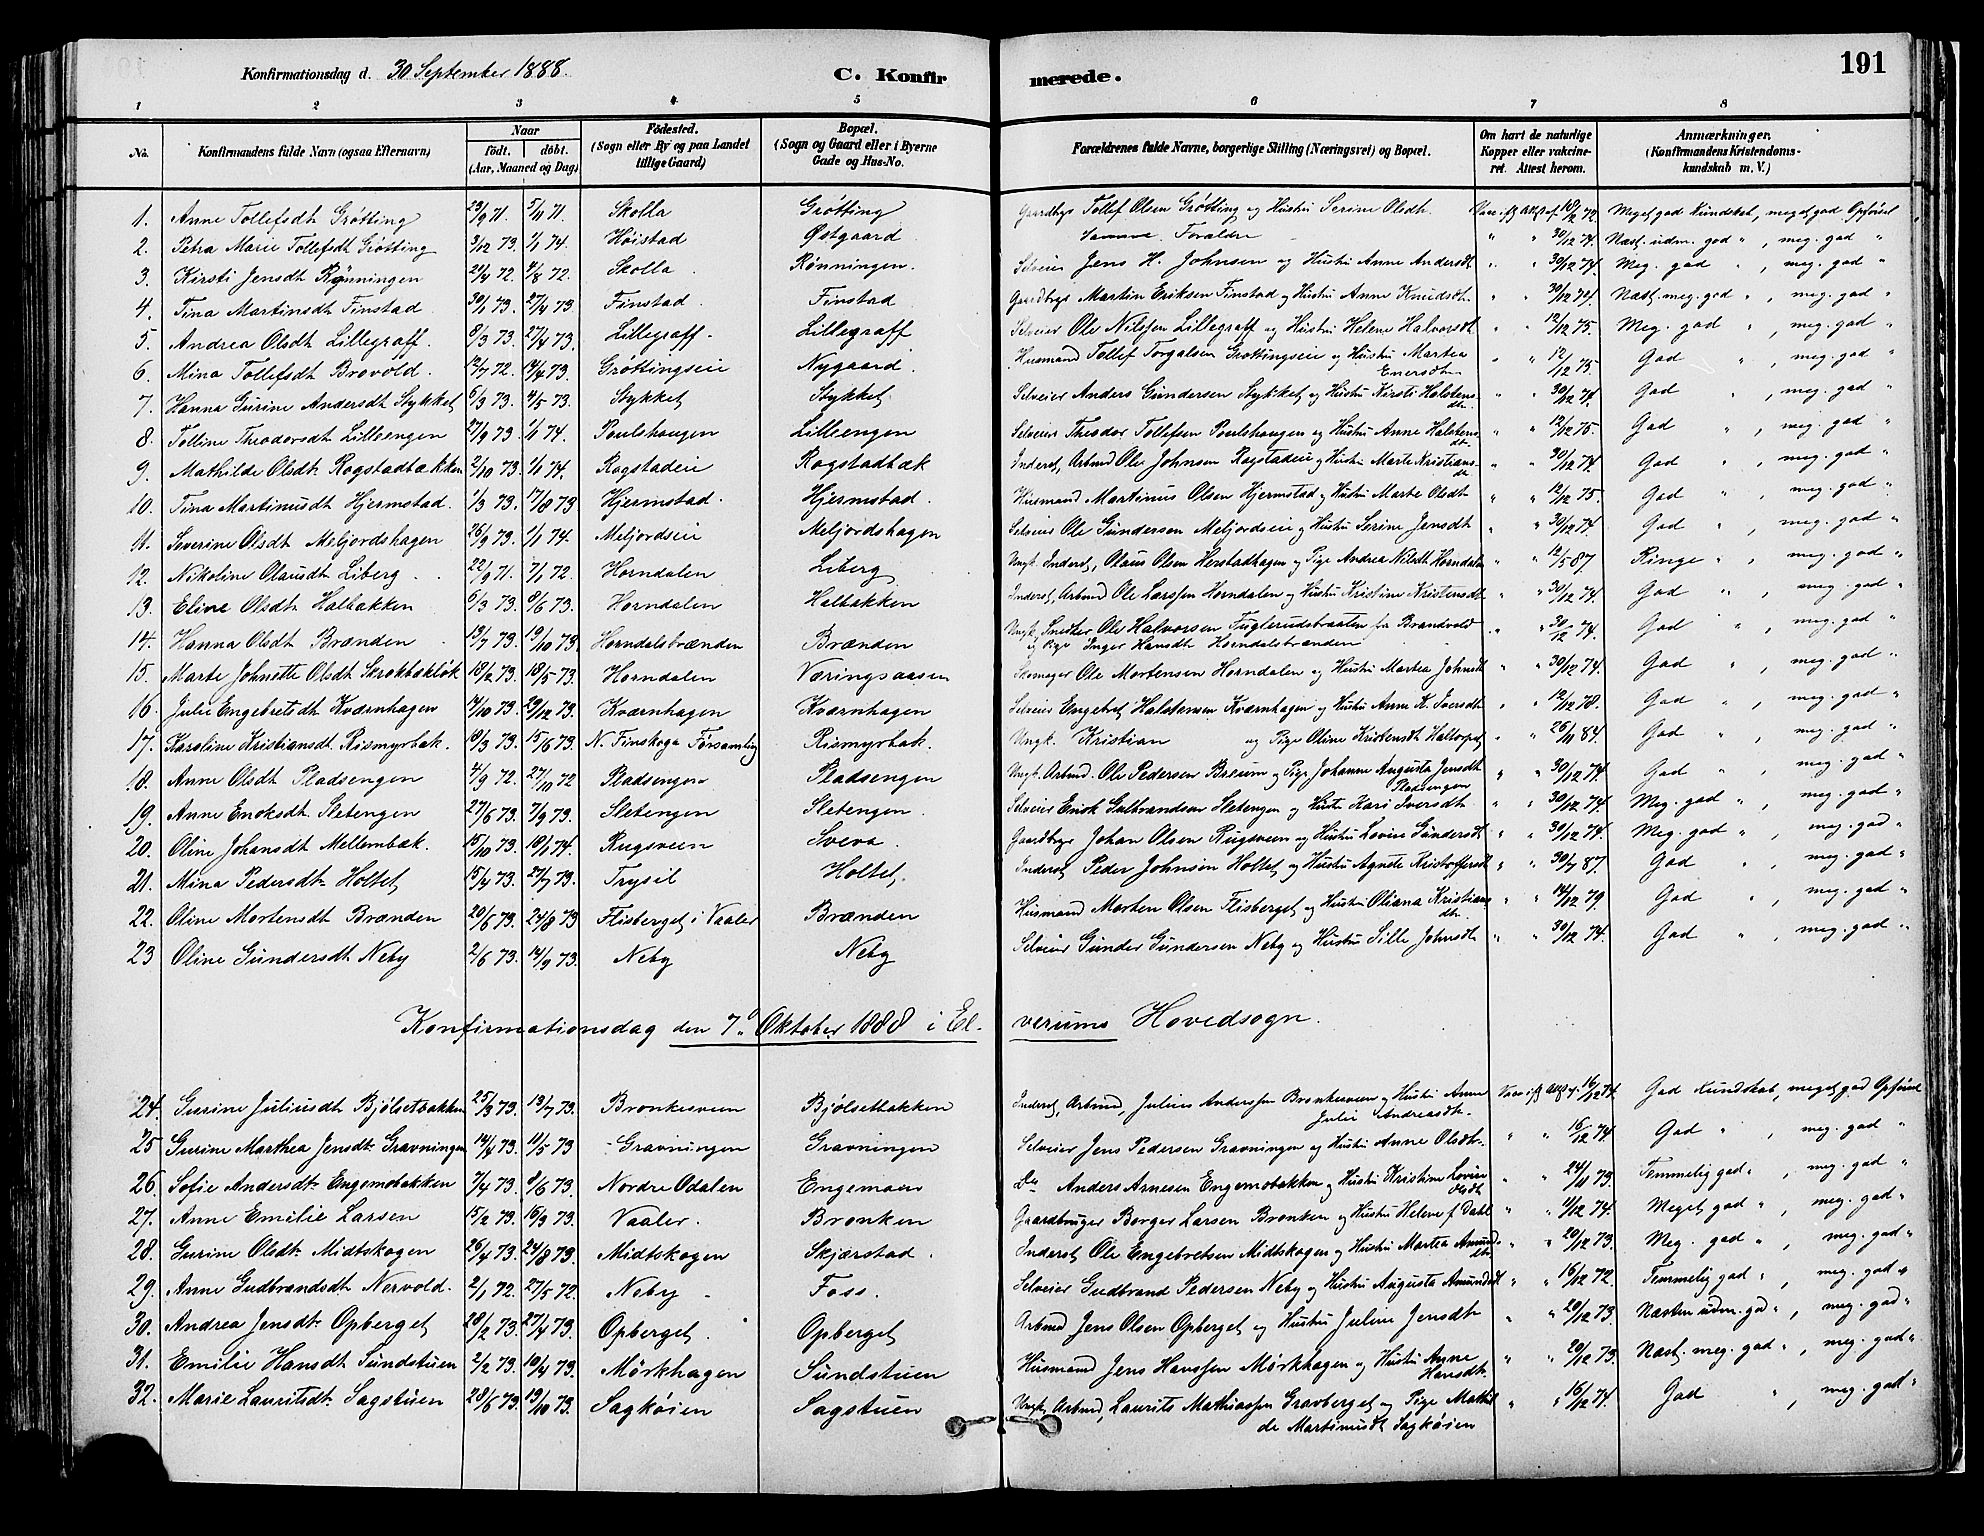 Konfirmationsdag d. 30 September 1888. C. Konfirmerede. 191
1 2 3 4 5 6 7 8
No. Konfirmandens fulde Navn (ogsaa Efternavn) Naar født. døbt. (Aar, Maaned og Dag) Fødested. (Sogn eller By og paa Landet tillige Gaard) Bopæl. (Sogn og Gaard eller i Byerne Gade og Hus-No. Forældrenes fulde Navne, borgerlige Stilling (Næringsvei) og Bopæl. Om havt de naturlige Kopper eller vakcineret. Attest herom. Anmærkninger. (Konfirmandens Kristendomskundskab m. V.)
1. Anne Tollefsdt Grøtting 23/9 71. 5/11 71. Skolla Grøtting Gaardbgr Tollef Olsen Grøtting og Hustru Serine Olsdt. Meget god Kundskab, meget god Opførsel
2. Petra Marie Tollefsdt Grøtting 3/12 73. 1/1 74. Høistad Østgaard Samme Forældre " " 30/12 74. Næst. udm. god " , meg. god "
3. Kirsti Jensdt Rønningen 29/4 72. 4/8 72. Skolla. Rønningen. Selveier Jens H. Johnsen og Hustru Anne Andersdt " " 30/12 74. Meg. god " , meg. god "
4. Tina Martinsdt Finstad 30/1 73. 27/4 73. Finstad. Finstad Gaardbgr Martin Eriksen Finstad og Hustru Anne Knudsdt. " " 30/12 74. Næst. meg. god " , meg. god "
5. Andrea Olsdt Lillegraff. 8/3 73. 27/4 73. Lillegraff. Lillegraff Selveier Ole Nilssen Lillegraff og Hustru Helene Halvorsdt " " 12/12 75. Meg. god " , meg. god "
6. Mina Tollefsdt Brovold. 12/7 72. 14/4 73. Grøttingseie Nygaard. Husmand Tollef Torgalsen Grøttingseie og Hustru Martea Enersdt " " 12/12 75. God " , meg. god "
7. Hanna Gurine Andersdt Stykket 6/3 73. 4/5 73. Stykket Stykket. Selveier Anders Gundersen Stykket og Hustru Kirsti Halstensdtr. " " 30/12 74. God " , meg. god "
8. Tolline Theodorsdt Lilleengen 27/9 73 1/1 74. Poulshaugen Lilleengen Selveier Theodor Tollefsen Poulshaugen og Hustru Anne Halstensdt. " " 12/12 75. God " , meg. god "
9. Mathilde Olsdt. Rogstadbakken 2/10 73. 1/1 74. Rogstadeie Rogstadbæk Inderst, Arbmd Ole Johnsen Rogstadeie og Hustru Marte Kristiansdt " " 30/12 74. God " , meg. god "
10. Tina Martinusdt Hjermstad 1/3 73. 17/8 73 Hjermstad. Hjermstad. Husmand Martinus Olsen Hjermstad og Hustru Marte Olsdt " " 12/12 75. God " , meg. god "
11. Severine Olsdt Meljordshagen 26/9 73. 1/1 74. Meljordseie Meljordshagen Selveier Ole Gundersen Meljordseie og Hustru Serine Jensdt " " 30/12 74 God " , meg. god "
12. Nikoline Olausdt Liberg. 22/9 71. 7/1 72. Horndalen Liberg Ungk. Inderst, Olaus Olsen Herstadhagen og Pige Andrea Nilsdt Horndalen " " 12/5 87 Ringe " , meg. god "
13. Eline Olsdt. Halbakken 6/3 73. 8/6 73. Horndalen Halbakken Inderst, Arbmd Ole Larssen Horndalen og Hustru Kristine Kristensdt " " 30/12 74. God " , meg. god "
14. Hanna Olsdt Brænden 13/7 73. 19/10 73. Horndalsbrænden Brænden Ungk. Smedker Ole Halvorsen Fuglerudsbraaten fra Brandvold og Pige Inger Hansdt Horndalsbrænden " " 30/12 74. God " , meg. god "
15. Marte Johnette Olsdt Skrokbaklök 18/2 73. 18/5 73. Horndalen Væringsaasen Skomager Ole Mortensen Horndalen og Hustru Martea Johnsdt " " 30/12 74. God " , meg. god "
16. Julie Engebretsdt Kværnhagen 14/10 73. 29/12 73. Kværnhagen Kværnhagen Selveier Engebret Halstensen Kværnhagen og Hustru Anne K. Iversdt " " 12/12 78. God " , meg. god "
17. Karoline Kristiansdt. Rismyrbak. 18/3 73. 15/6 73. N. Finskoga Forsamling Rismyrbak. Ungk. Kristian og Pige Oline Kristensdt Haltorpet " " 26/11 84. God " , meg. god "
18. Anne Olsdt Pladsengen 4/9 72. 27/10 72 Pladsengen Pladsengen Ungk. Arbmd. Ole Pedersen Breum og Pige Johanne Augusta Jensdt Pladsengen " " 30/12 74. God " , meg. god "
19. Anne Enoksdt. Sletengen 27/6 73. 7/9 73. Sletengen Sletengen. Selveier Enok Gulbrandsen Sletengen og Hustr Kari Iversdt. " " 30/12 74. Meg. god " , meg. god "
20. Oline Johansdt Mellembæk. 15/10 73. 18/1 74. Rugsveen Sveva. Gaardbgr Johan Olsen Rugsveen og Hustru Lovise Gundersdt " " 30/12 74. Meg. god " , meg. god "
21. Mina Pedersdt. Holtet 15/4 73. 27/7 73. Trysil Holtet. Inderst Peder Johnsen Holtet og Hustru Agnete Kristoffersdt " " 30/7 87. God " , meg. god "
22. Oline Mortensdt Brænden 20/6 73. 24/8 73 Flisberget i Vaaler Brænden Husmand Morten Olsen Flisberget og Hustru Oliana Kristiansdtr. " " 14/12 79. God " , meg. god "
23 Oline Gundersdt Neby 2/6 73. 14/9 73. Neby Neby Selveier Gunder Gundersen Neby og Hustru Sille Johnsdt. " " 30/12 74. God " , meg. god "
Konfirmationsdag den 7de Oktober 1888 i Elverums Hovedsogn.
24. Gurine Juliusdt Bjølsetbakken 25/3 73. 13/7 73. Bronkesveen Bjølsetbakken Inderst, Arbmd, Julius Anderssen Bronkesveen og Hustru Anne Julie Andreasdt. 16/12 74. God Kundskab, meget god Opførsel
25 Gurine Marthea Jensdt. Gravningen 14/4 73. 11/5 73 Gravningen Gravningen Selveier Jens Pedersen Gravningen og Hustru Anne Olsdt. " " 16/12 74 God " , meg. god "
26. Sofie Andersdt. Engemobakken 7/4 73. 8/6 73. Nordre Odalen Engemoen Do Anders Arnesen Engemobakken og Hustru Kristine Lovise Olsdt " " 24/11 73. Temmelig god " , meg. god "
27. Anne Emilie Larsen 15/2 73. 16/3 73. Vaaler. Bronken Gaardbruger Borger Larsen Bronken og Hustru Helene f. Dahl " " 11/12 74. Meget god " , meg. god "
28. Gurine Olsdt. Midtskogen 26/4 73. 24/8 73. Midtskogen Skjærstad. Inderst Ole Engebretsen Midtskogen og Hustru Martea Amundsdtr " " 20/12 73. Meg. god " , meg. god "
29. Anne Gudbrandsdt Nervold. 2/1 72. 27/5 72. Neby Foss. Selveier Gudbrand Pedersen Neby og Hustru Augusta Amundsdt " " 16/12 72. Temmelig god " , meg. god "
30. Andrea Jensdt. Opberget 28/2 73. 27/4 73. Opberget. Opberget Arbmd Jens Olsen Opberget og Hustru Juline Jensdt " " 20/12 73. Næsten udm. god " , meg. god "
31. Emilie Hansdt Sundstuen 2/2 73. 10/4 73. Mørkhagen Sundstuen Husmand Jens Hanssen Mørkhagen og Hustru Anne Hansdt. " " 20/12 73. Næst. meg. god " , meg. god "
32. Marie Lauritsdt. Sagstuen 28/6 73. 19/10 73. Sagkøien Sagstuen Ungk, Arbmd, Laurits Mathiassen Gravberget og Pige Mathilde Martinusdt Sagkøien " " 16/12 74. God " , meg. god "